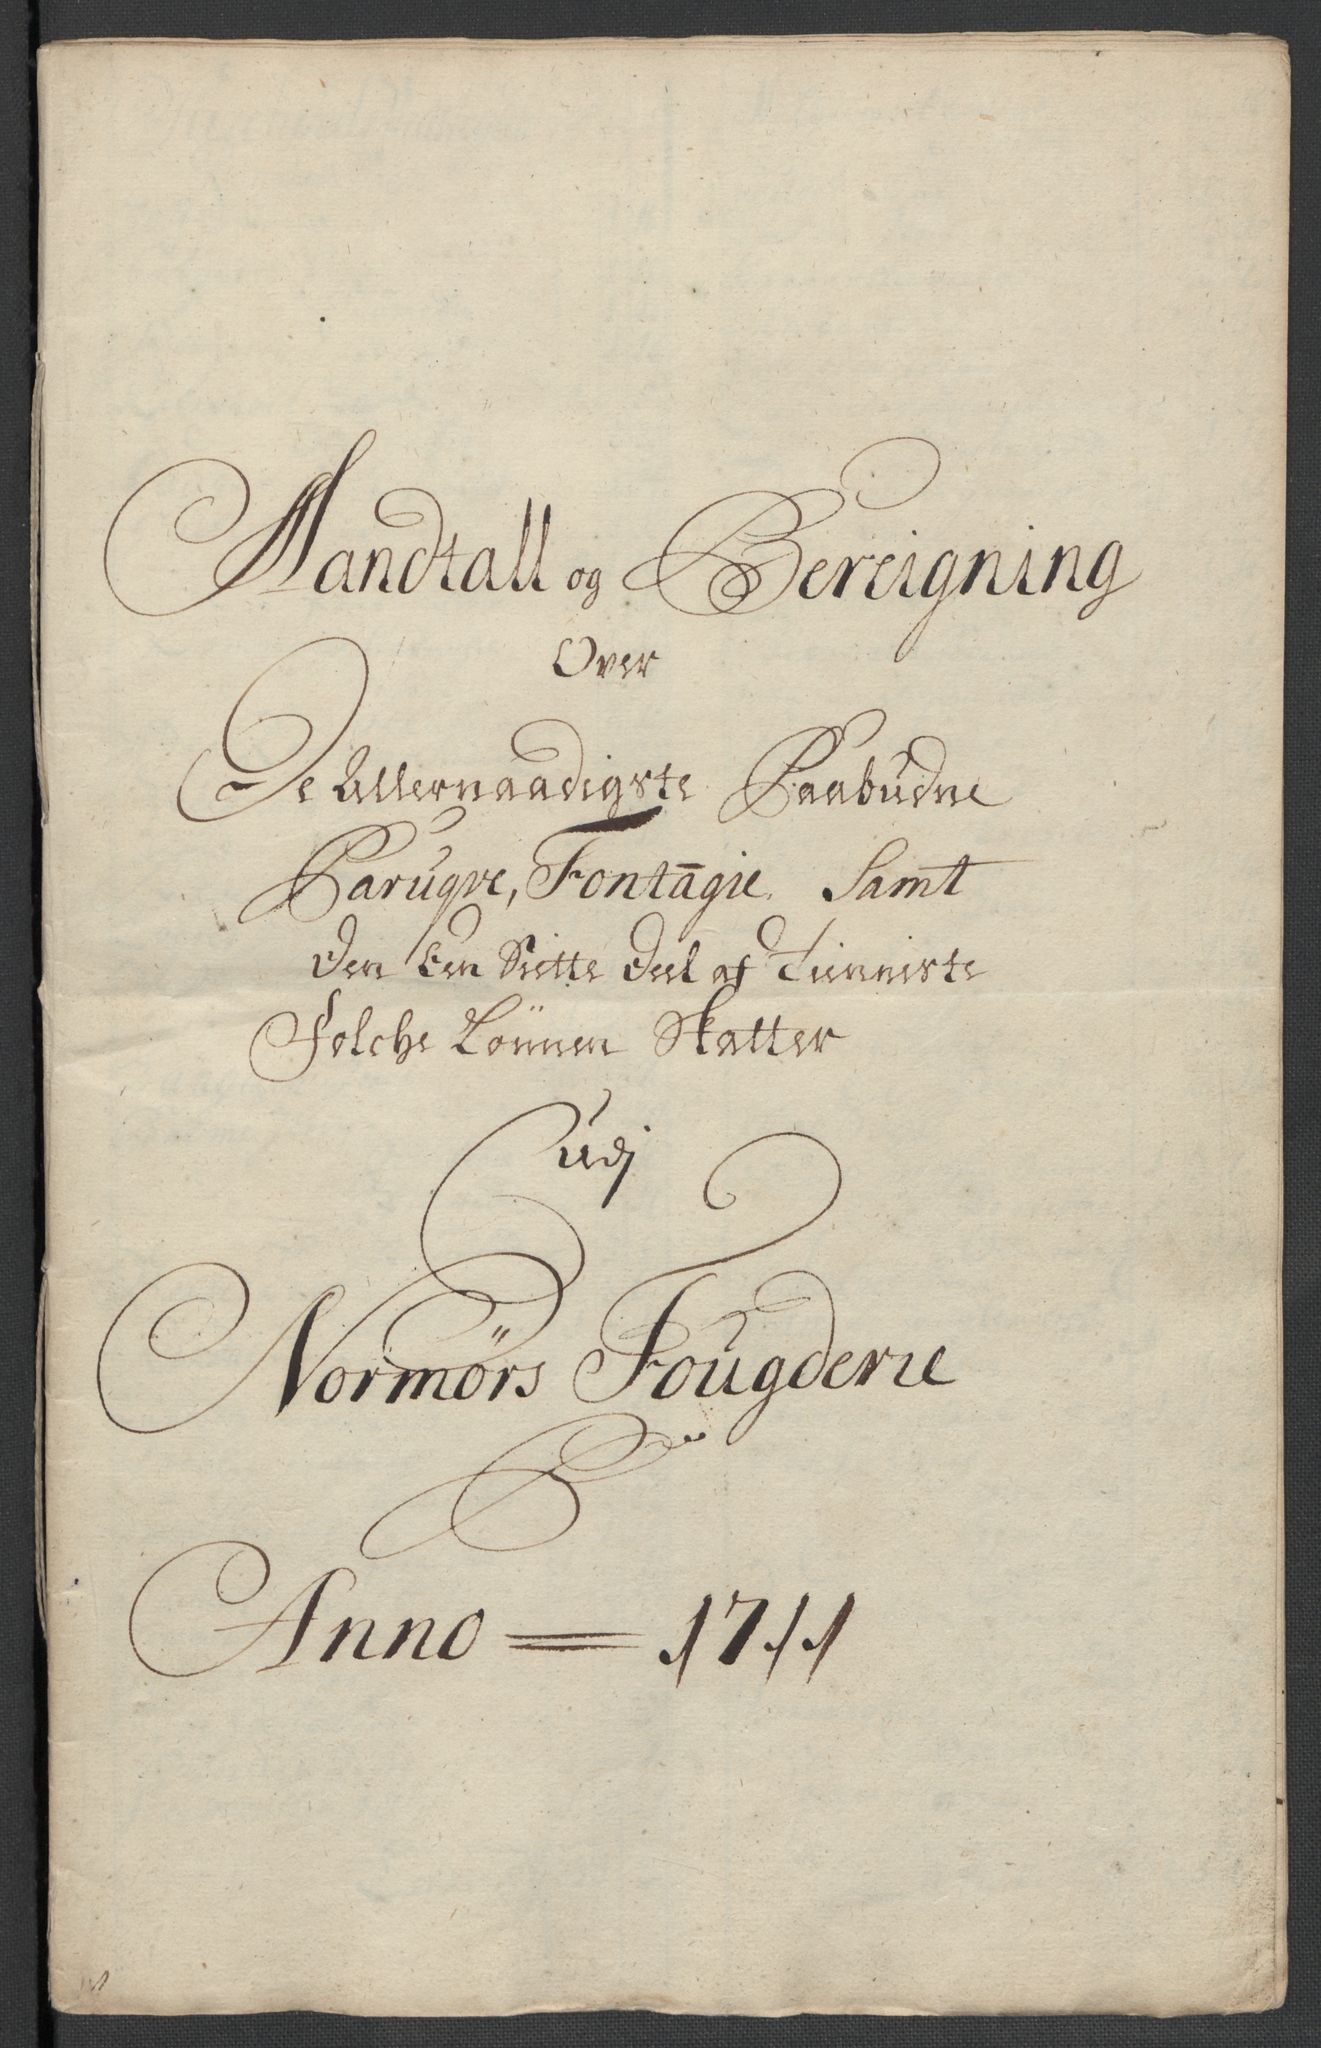 Mandtall og Bereigning
Over
De Allernaadigste Paabudne
Paruqve, Fontagie. Samt
den Een Siette Deel af Tienniste
Folche Lönnen Skatter
udj
Normörs Fougderie
Anno = 1711